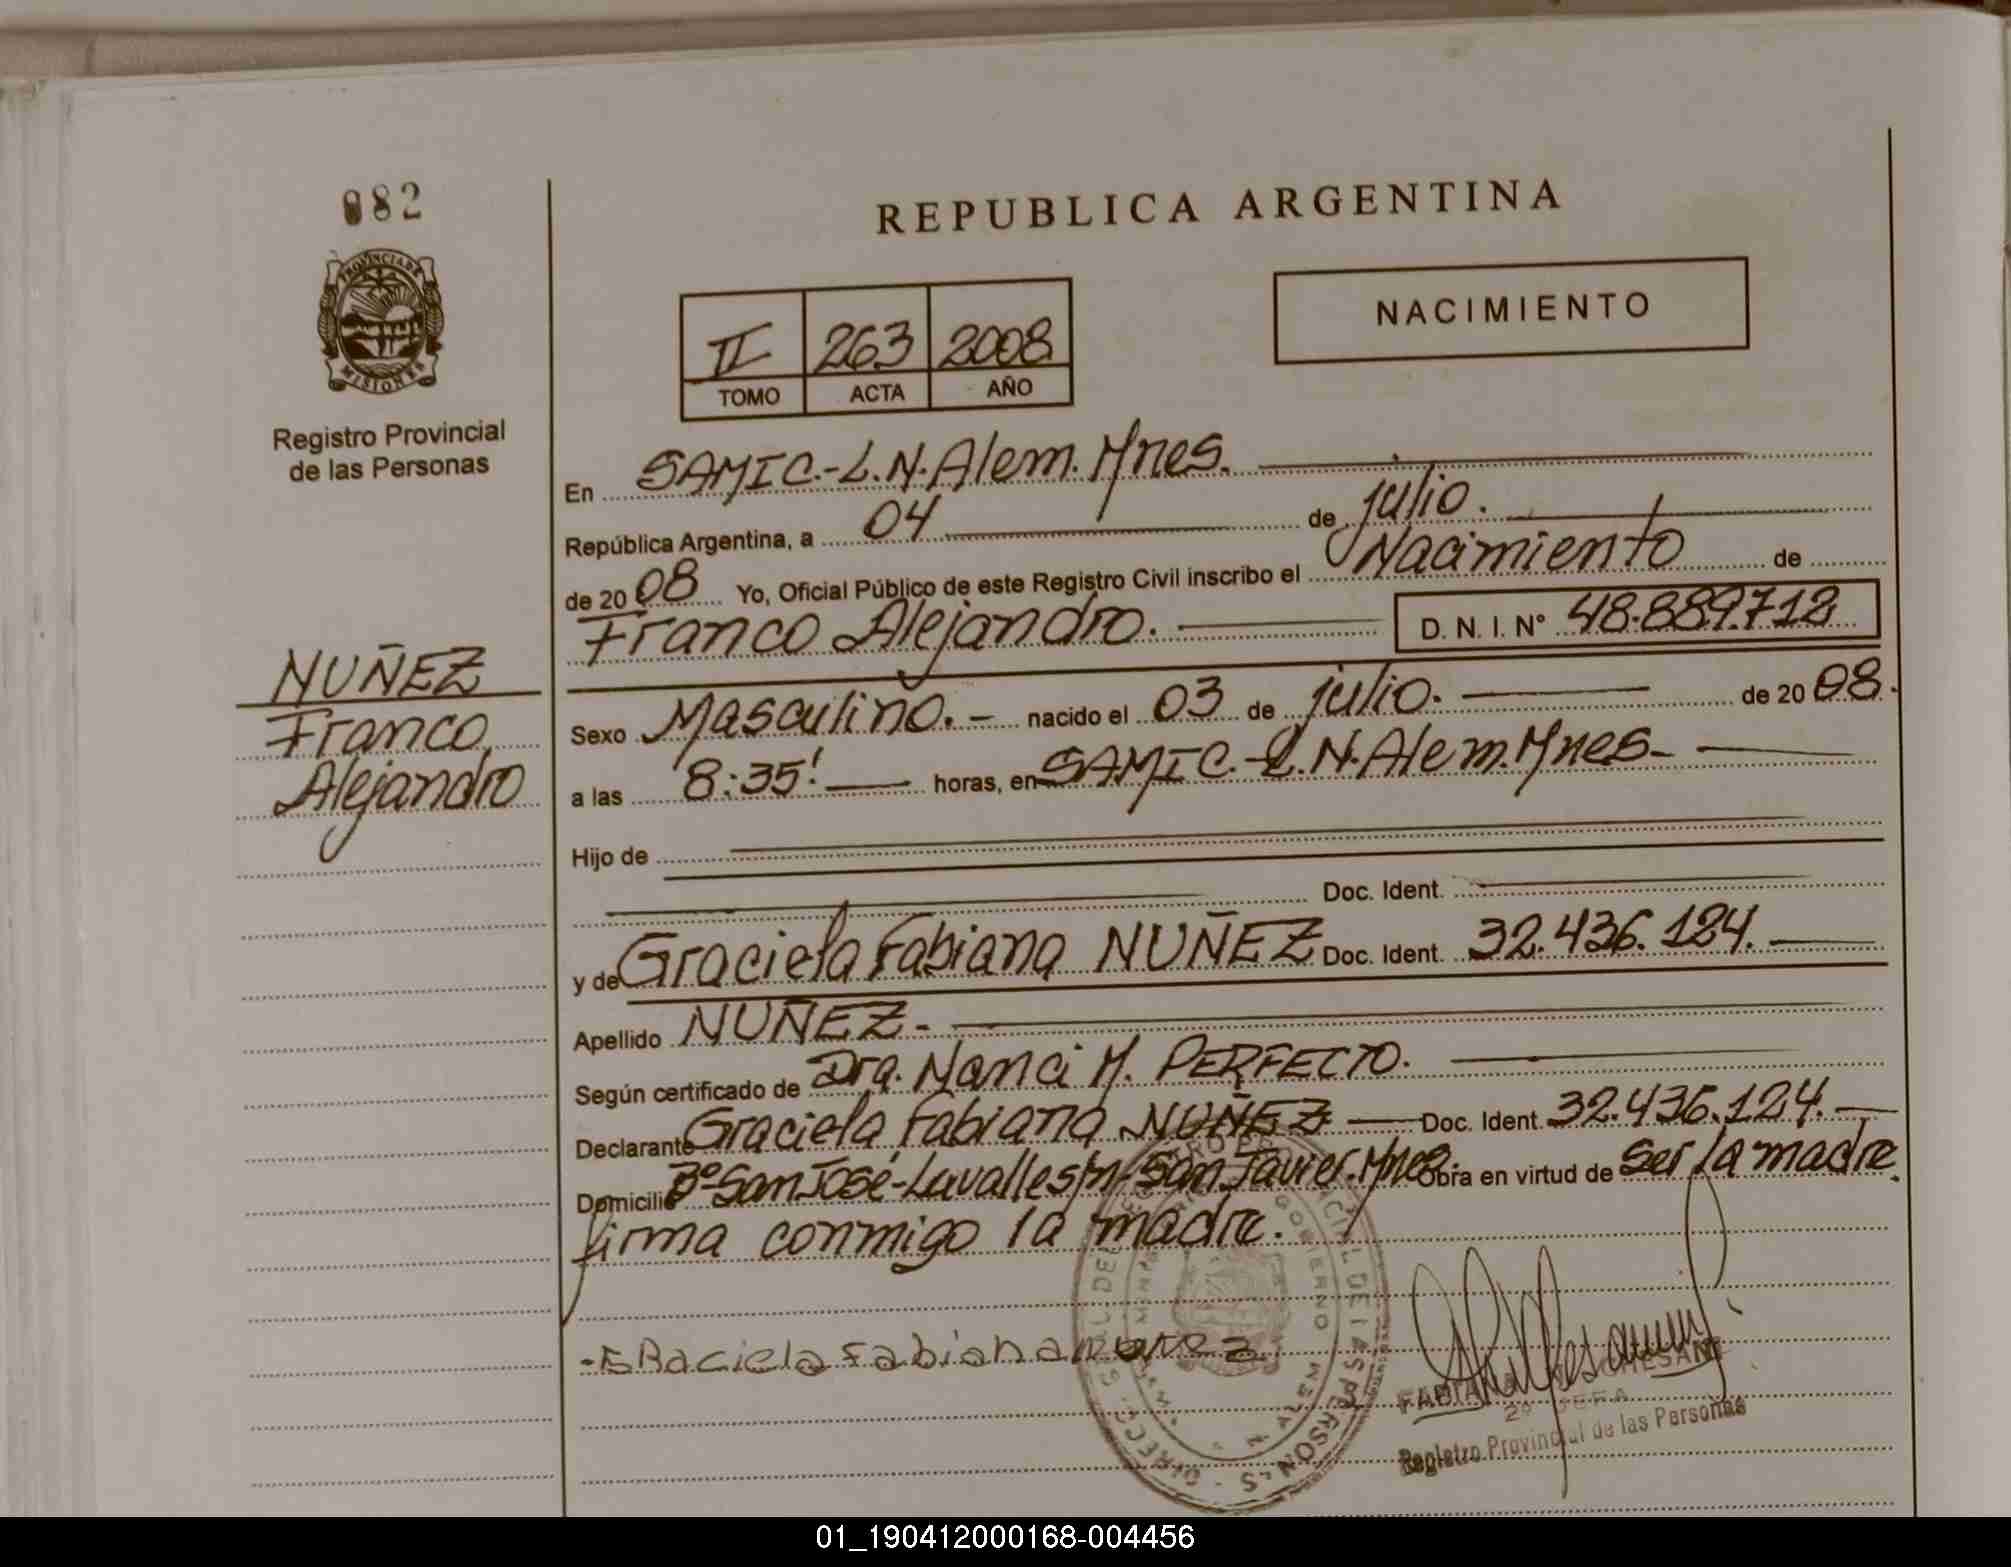 082
REPUBLICA ARGENTINA
PROVINCIA DE
MISIONES
Registro Provincial
de las Personas
II 263 2008
TOMO ACTA AÑO
NACIMIENTO
En SAMIC.-L.N.Alem.Mnes.
República Argentina, a 04 de julio.
de 2008 Yo, Oficial Público de este Registro Civil inscribo el Nacimiento de
Franco Alejandro. D. N. I. N° 48.889.712
NUÑEZ
Franco
Alejandro
Sexo Masculino.- nacido el 03 de julio. de 2008.
a las 8:35' horas, en SAMIC.-L.N.Alem.Mnes-
Hijo de
Doc. Ident.
y de Graciela Fabiana NUÑEZ Doc. Ident. 32.436.124.
Apellido NUÑEZ-
Según certificado de Dra. Nanci M. PERFECTO.
Declarante Graciela Fabiana NUÑEZ Doc. Ident. 32.436.124.
Domicilio Bº San José-Lavalle s/n-San Javier.Mnes. Obra en virtud de ser la madre.
firma conmigo la madre.
Graciela Fabiana nuñez
FABIANA
2º JEFA
Registro Provincial de las Personas
01_190412000168-004456